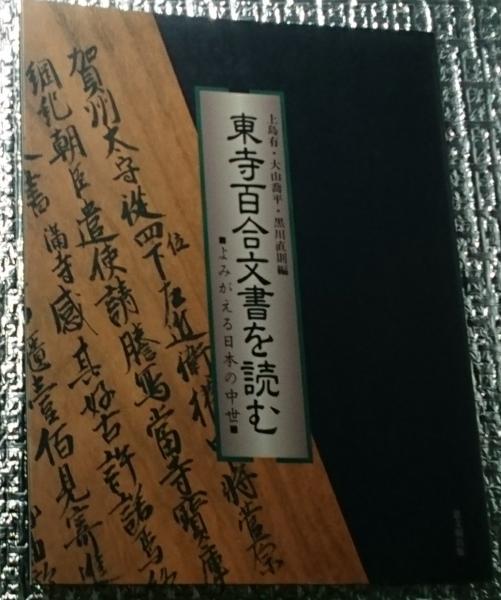 上島有・大山喬平・黒川直則編
東寺百合文書を読む
■よみがえる日本の中世■
賀州太守従四位下左近衛権
将菅宗
綱紀朝臣遣使請謄写當寺寳庫
満寺感其好古許諾焉
匱壹佰見寄進